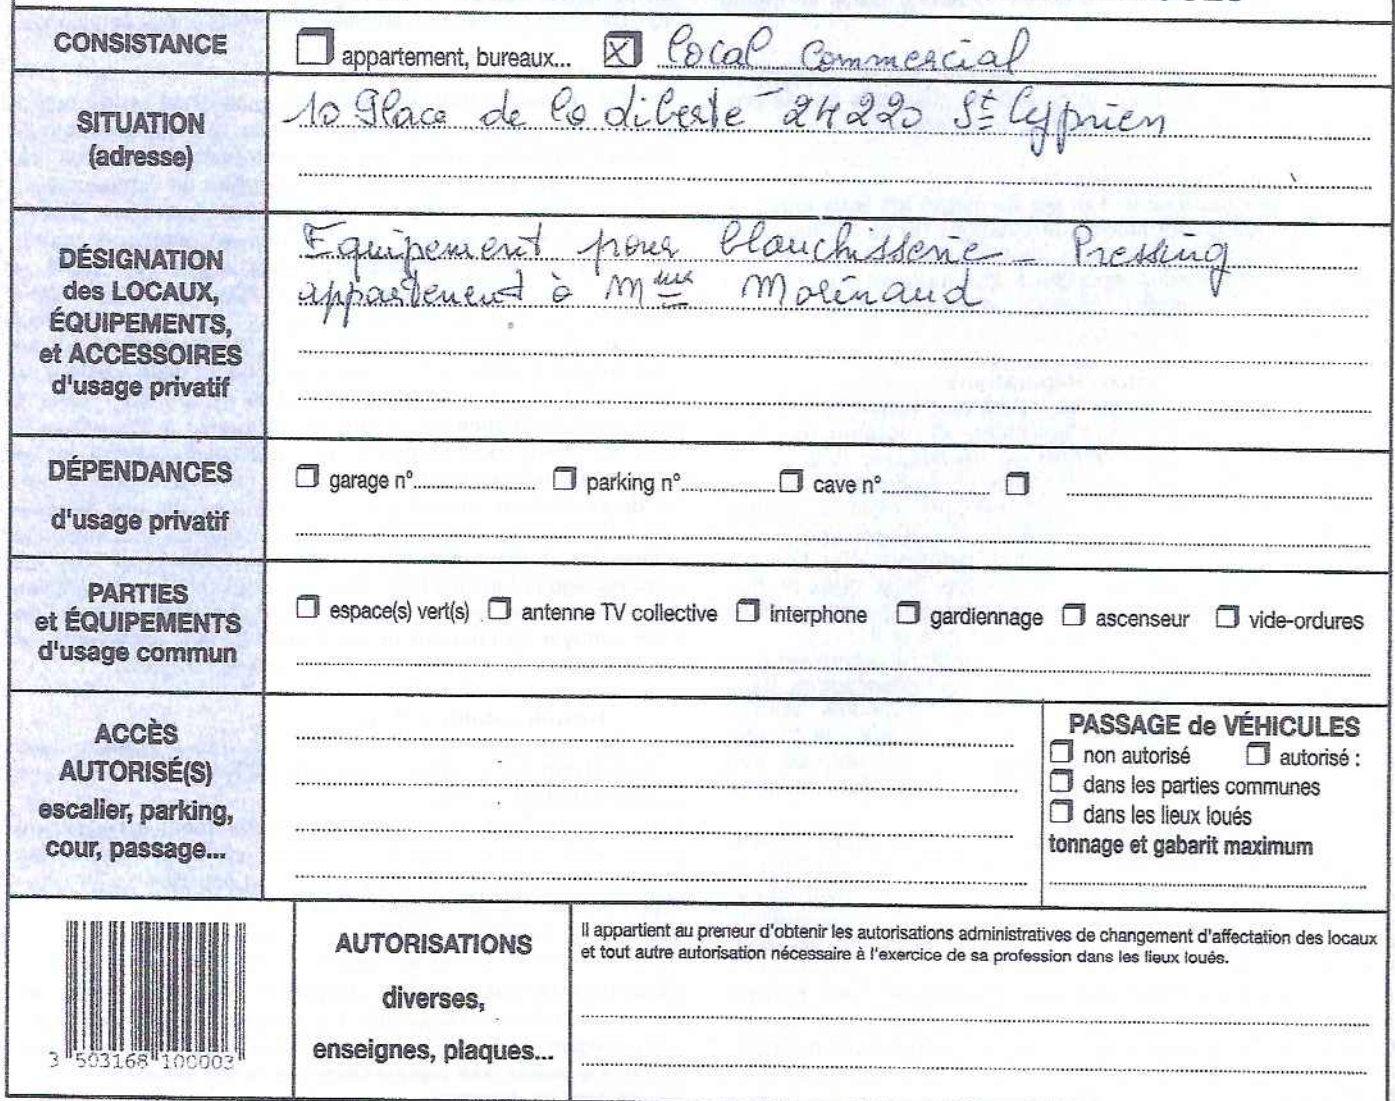 CONSISTANCE
appartement, bureaux... X local commercial
SITUATION
(adresse)
10 Place de la liberte - 24220 St Cyprien
DÉSIGNATION
des LOCAUX,
ÉQUIPEMENTS,
et ACCESSOIRES
d'usage privatif
Equipement pour blanchisserie - Pressing
appartenent à Mme Morinaud
DÉPENDANCES
d'usage privatif
garage n° parking n° cave n°
PARTIES
et ÉQUIPEMENTS
d'usage commun
espace(s) vert(s) antenne TV collective interphone gardiennage ascenseur vide-ordures
ACCÈS
AUTORISÉ(S)
escalier, parking,
cour, passage...
PASSAGE de VÉHICULES
non autorisé autorisé :
dans les parties communes
dans les lieux loués
tonnage et gabarit maximum
3 503168 100003
AUTORISATIONS
diverses,
enseignes, plaques...
Il appartient au preneur d'obtenir les autorisations administratives de changement d'affectation des locaux
et tout autre autorisation nécessaire à l'exercice de sa profession dans les lieux loués.